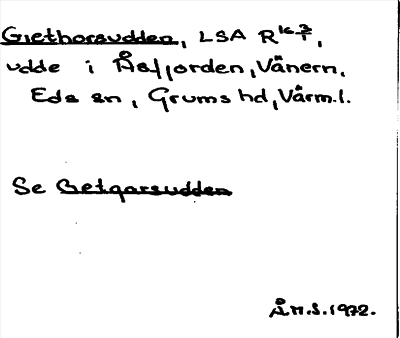 Giethorsudden, LSA R16-3/1,
udde i Åsfjorden, Vänern,
Eds sn, Grums hd, Värml.
Se Getgarsudden
Å.H.S.1972.